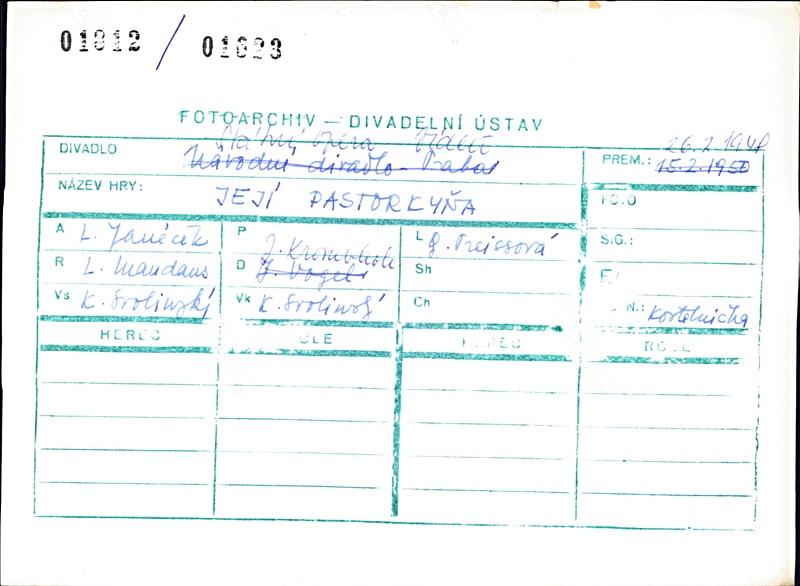 01812 / 01823
FOTOARCHIV — DIVADELNÍ ÚSTAV
DIVADLO
Státní opera
Národní divadlo - Praha
PREM.: 26.2.194
15.2.1950
NÁZEV HRY: JEJÍ PASTORKYŇA
FOTO
A L. Janáček
P
L G. Preissová
SIG.:
R L. Mandaus
J. Krombholc
D J. Vogel
Sh
Vs K. Svolinský
Vk K. Svolinský
Ch
N.: Kostelnička
HEREC
ROLE
HEREC
ROLE